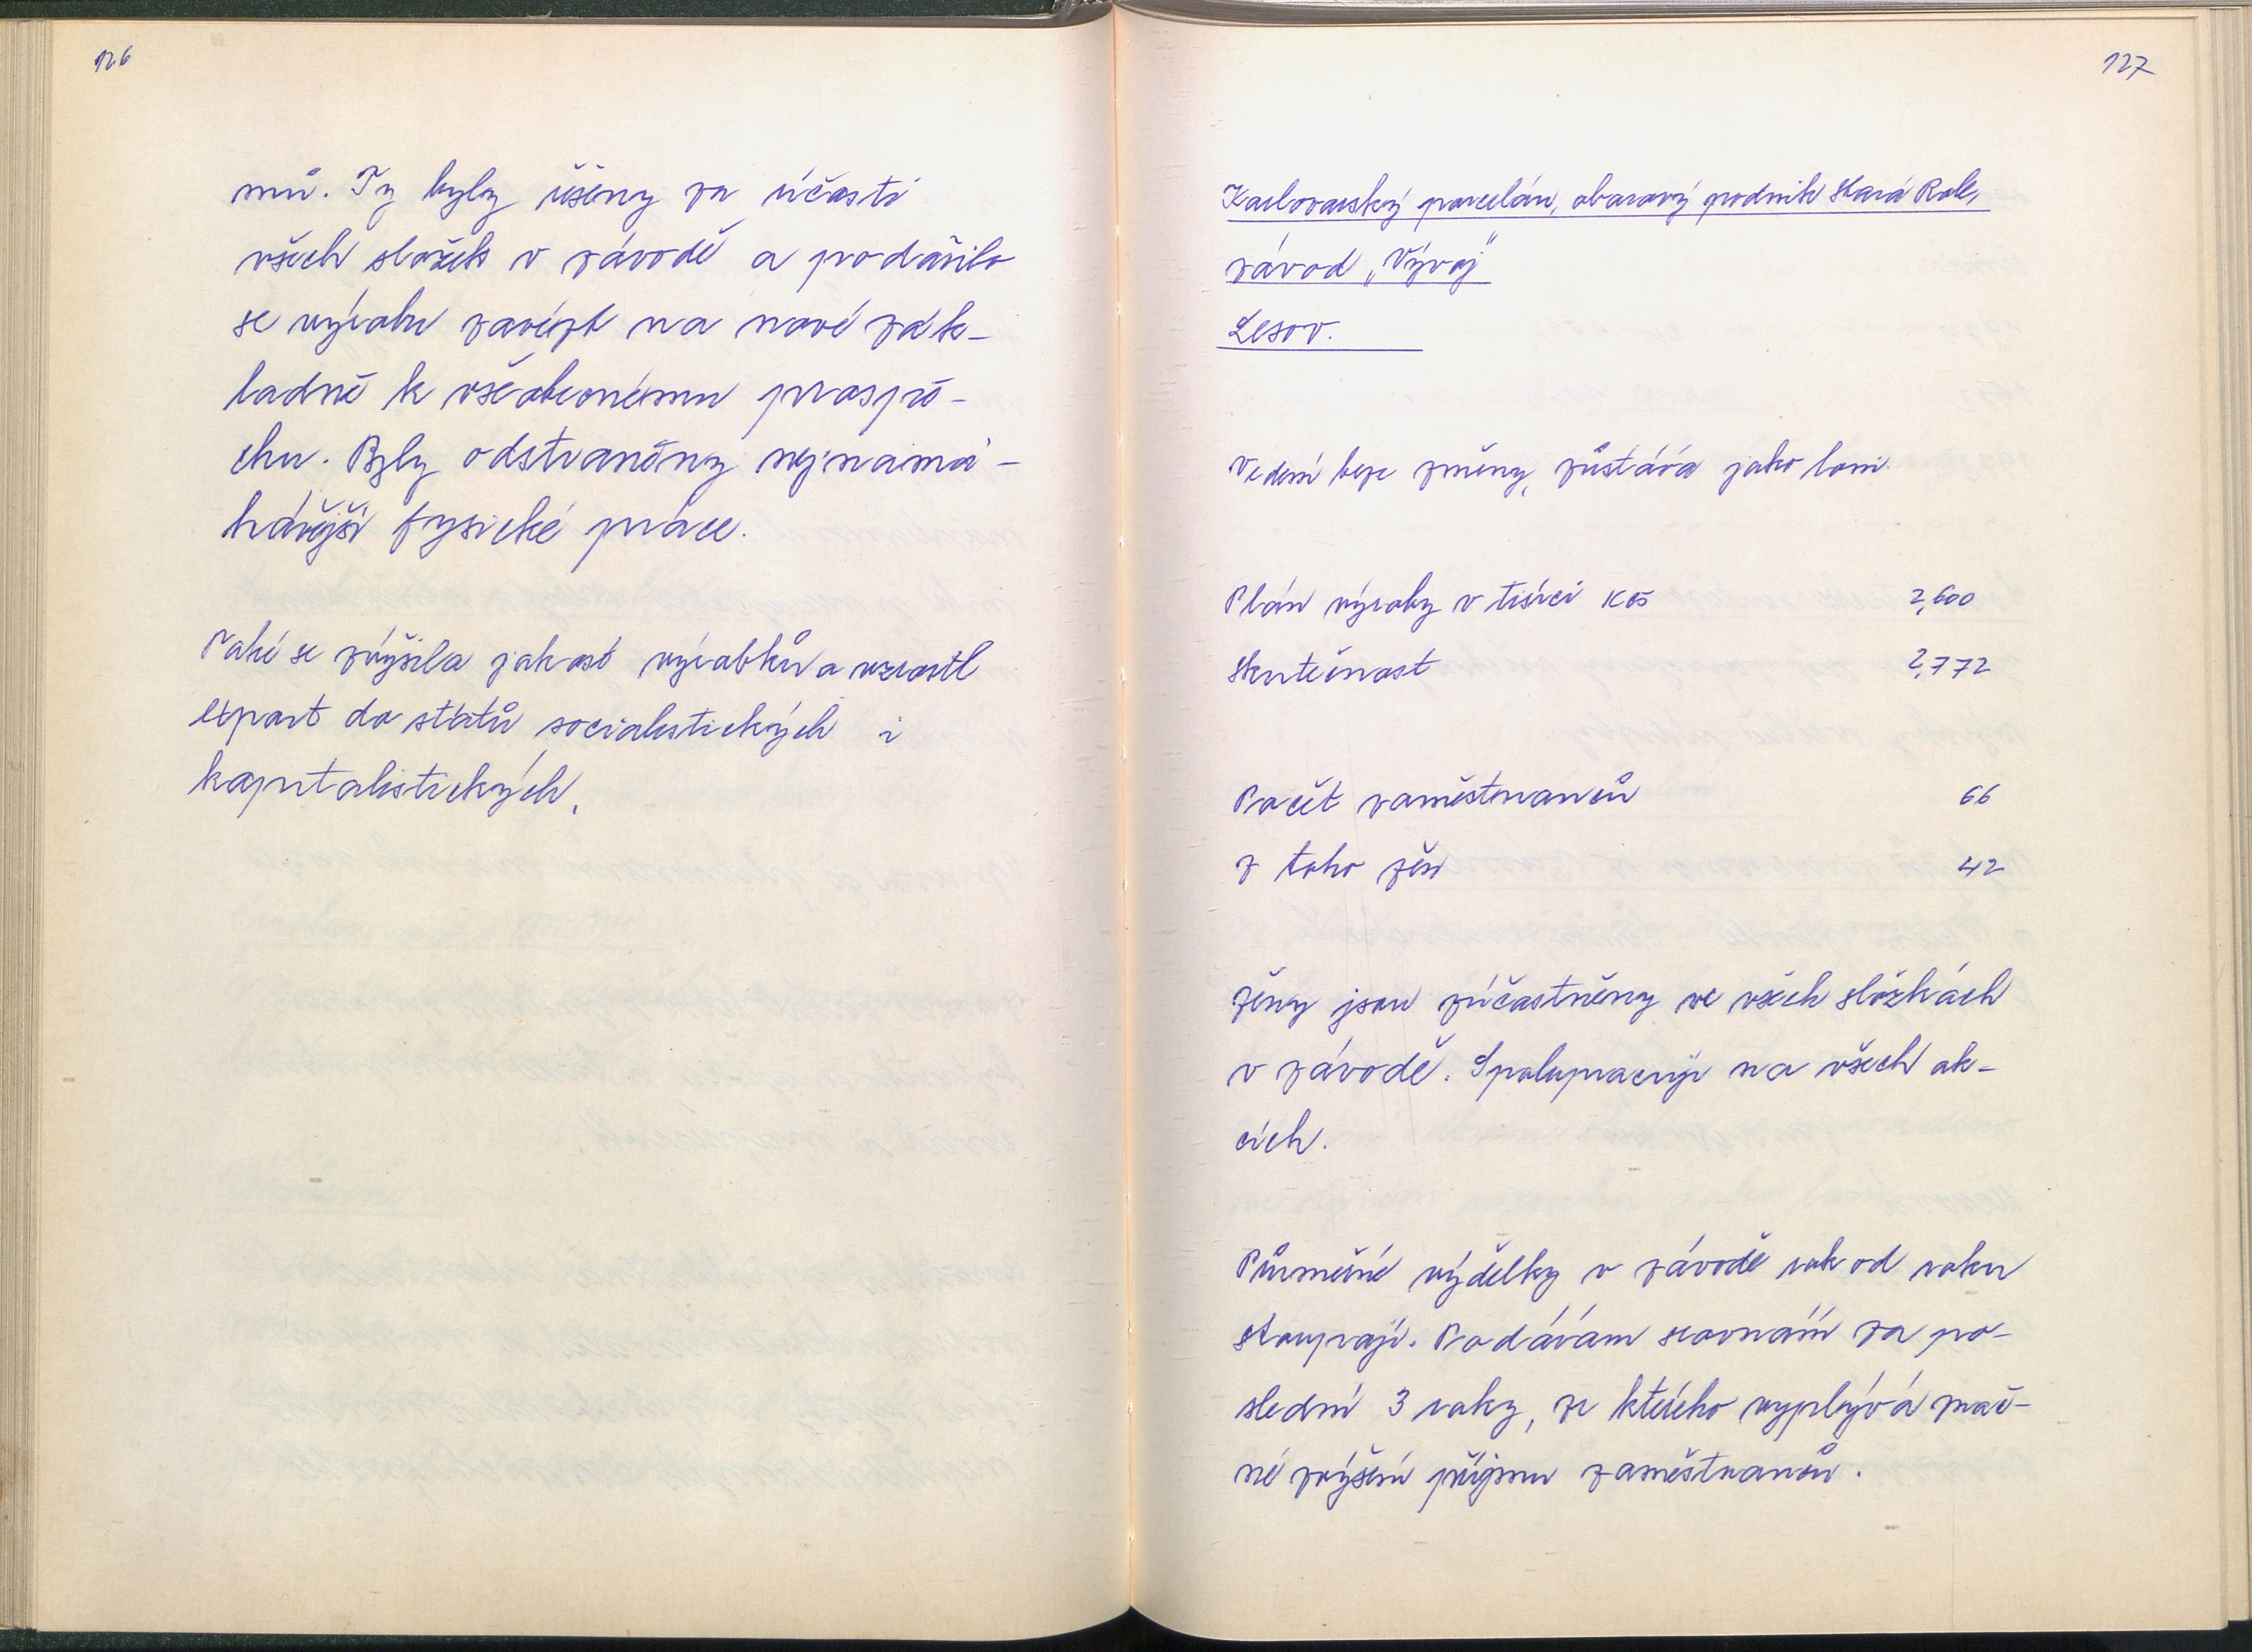 126
mů. Ty byly řešeny za účasti
všech složek v závodě a podařilo
se výrobu zavézt na nové zák-
ladně k všeobecnému prospě-
chu. Byly odstraněny nejnamá-
havější fysické práce.
Také se zvýšila jakost výrobků a vzrostl
export do států socialistických i
kapitalistických.
127
Karlovarský porcelán, oborový podnik Stará Role,
závod „Vývoj"
Lesov.
Vedení beze změny, zůstává jako loni.
Plán výroby v tisíci Kčs 2,600
Skutečnost 2,772
Počet zaměstnanců 66
z toho žen 42
Ženy jsou zúčastněny ve všech složkách
v závodě. Spolupracují na všech ak-
cích.
Průměrné výdělky v závodě rok od roku
stoupají. Podávám srovnání za po-
slední 3 roky, ze kterého vyplývá znač-
né zvýšení příjmu zaměstnanců.